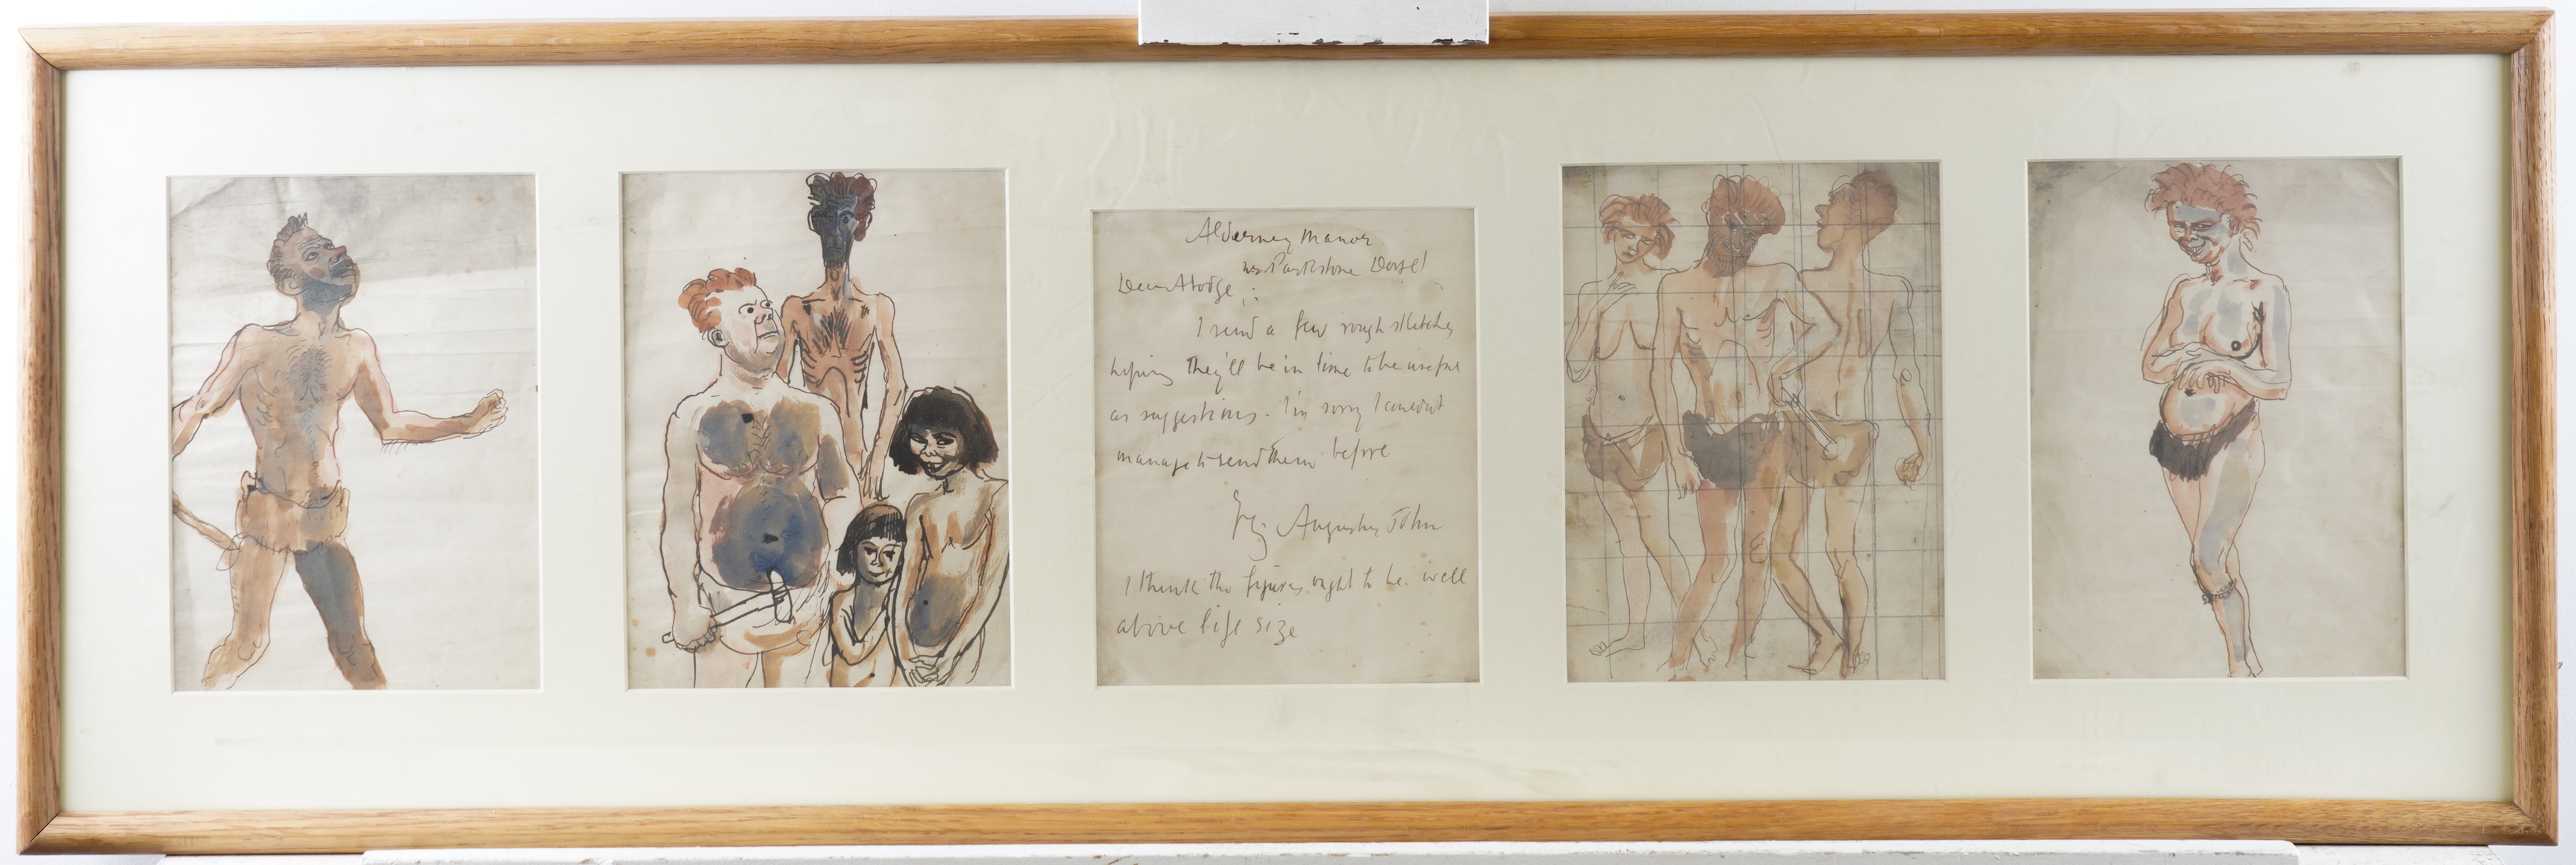 Alderney Manor
nr Parkstone Dorset
Dear Hodge;
I send a few rough sketches
hoping they'll be in time to be useful
as suggestions. I'm sorry I couldn't
manage to send them before
Augustus John
I think the figures ought to be well
above life size